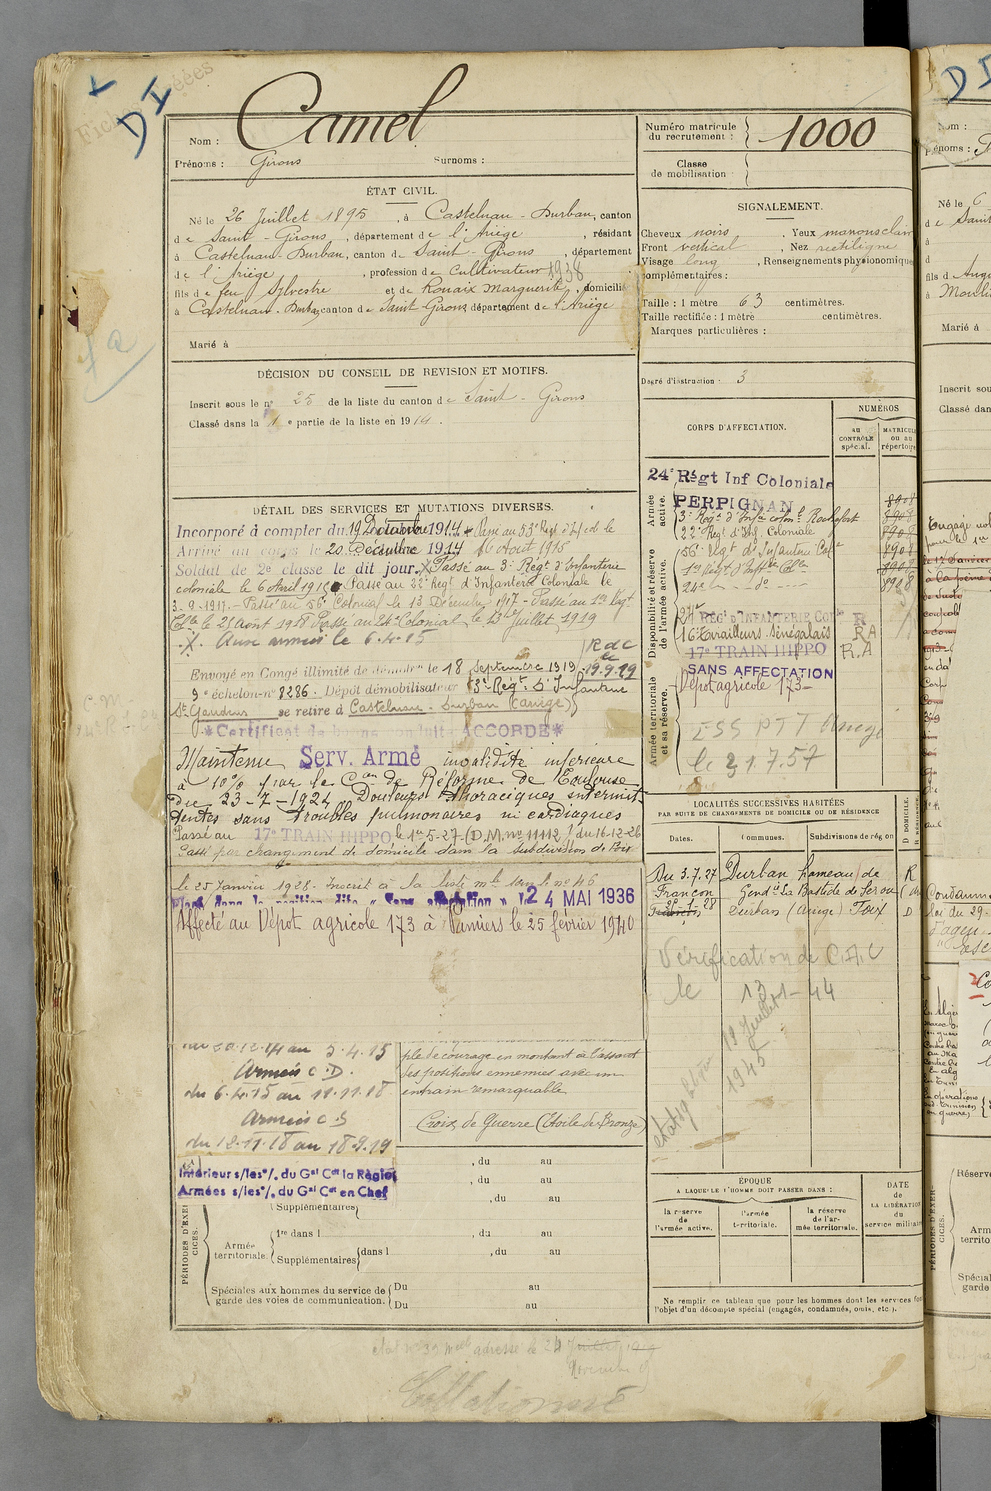 D I
Nom : Camel
Prénoms : Girons Surnoms :
Numéro matricule du recrutement : 1000
Classe de mobilisation :
ÉTAT CIVIL.
Né le 26 Juillet 1895, à Castelnau-Durban, canton
de Saint-Girons, département de l'Ariège, résidant
à Castelnau-Durban, canton de Saint-Girons, département
de l'Ariège, profession de Cultivateur 1938
fils de feu Sylvestre et de Rouaix Marguerite, domicilié
à Castelnau-Durban, canton de Saint Girons, département de l'Ariège
Marié à
SIGNALEMENT.
Cheveux noirs. Yeux marrons clair
Front vertical, Nez rectiligne
Visage long, Renseignements physionomique
complémentaires :
Taille : 1 mètre 63 centimètres.
Taille rectifiée : 1 mètre centimètres.
Marques particulières :
Degré d'instruction : 3
DÉCISION DU CONSEIL DE REVISION ET MOTIFS.
Inscrit sous le n° 25 de la liste du canton de Saint-Girons
Classé dans la 1e partie de la liste en 1914.
CORPS D'AFFECTATION.
NUMÉROS
AU CONTRÔLE spécial.
MATRICULE ou au répertoire
Armée active.
Disponibilité et réserve de l'armée active.
Armée territoriale et sa réserve.
24e Régt Inf Coloniale
PERPIGNAN 8908
3e Régt d'Infie colonle Rochefort 8908
22e Régt d'Inf. Coloniale 8908
56e Régt d'Infanterie Cale 8908
1er Régt d'Inftie Clle 8908
24e - do - 8908
24e REGt D'INFANTERIE Cole R
16e Travailleurs Sénégalais RA
17e TRAIN HIPPO R.A
SANS AFFECTATION
Dépot agricole 173
ESS PTT Ariège
le 31.7.57
DÉTAIL DES SERVICES ET MUTATIONS DIVERSES.
Incorporé à compter du 19 Décembre 1914. Passé au 53e Regt d'Inf col le
Arrivé au corps le 20 Décembre 1914 16 Aout 1915
Soldat de 2e classe le dit jour. X Passé au 3e Regt d'Infanterie
coloniale le 6 Avril 1916 Passé au 22e Regt d'Infanterie Coloniale le
3.9.1917.- Passé au 56e Colonial le 13 Décembre 1917 - Passé au 1er Régt
Clle le 21 Aout 1918 Passé au 24e Colonial, le 13 Juillet 1919
X. Aux armées le 6.4.15
R d C
le
19.9.19
Envoyé en Congé illimité de démobon le 18 Septembre 1919
9e échelon-n° 8286. Dépôt démobilisateur 3e Régt d'Infanterie
St Gaudens se retire à Castelnau-Durban (Ariège)
*Certificat de bonne conduite ACCORDÉ*
Maintenu Serv. Armé invalidité inférieure
à 10% par la Con de Réforme de Toulouse
du 23-7-1924 Douleurs thoraciques intermit-
tentes sans troubles pulmonaires ni cardiaques
Passé au 17e TRAIN HIPPO le 1er 5-27 (D.M. n° 11112 / du 16-12-26
Passé par changement de domicile dans la subdivision de Foix
le 25 Janvier 1928. Inscrit à la liste mle sous le n° 46
Placé dans la position dite « Sans affectation » le 24 MAI 1936
Affecté au Dépot agricole 173 à Pamiers le 25 février 1940
LOCALITÉS SUCCESSIVES HABITÉES
PAR SUITE DE CHANGEMENTS DE DOMICILE OU DE RÉSIDENCE
Dates. Communes. Subdivisions de région
D DOMICILE. R RÉSIDENCE
Du 3.7.27 Durban hameau de R
Francon Gendie La Bastide de Sérou
25-1-28 Durban (Ariège) Foix D
Vérification de C.A.C
le 13-1-44
18 Juillet 1945
du 20.12.14 au 5.4.15
Armées C.D.
du 6.4.15 au 11.11.18
Armées C.S
du 12.11.18 au 18.9.19
Intérieur s/les°/. du Gal Cdt la Région
Armées s/les°/. du Gal Cdt en Chef
ple de courage en montant à l'assaut
des positions ennemies avec un
entrain remarquable
Croix de Guerre (Etoile de Bronze)
, du au
, du au
Supplémentaires , du au
PÉRIODES D'EXERCICES.
Armée territoriale.
1re dans l , du au
Supplémentaires dans l , du au
Spéciales aux hommes du service de garde des voies de communication.
Du au
Du au
ÉPOQUE
A LAQUELLE L'HOMME DOIT PASSER DANS :
la réserve de l'armée active.
l'armée territoriale.
la réserve de l'armée territoriale.
DATE de LA LIBÉRATION du service militaire
Ne remplir ce tableau que pour les hommes dont les services font
l'objet d'un décompte spécial (engagés, condamnés, omis, etc.).
Collationné